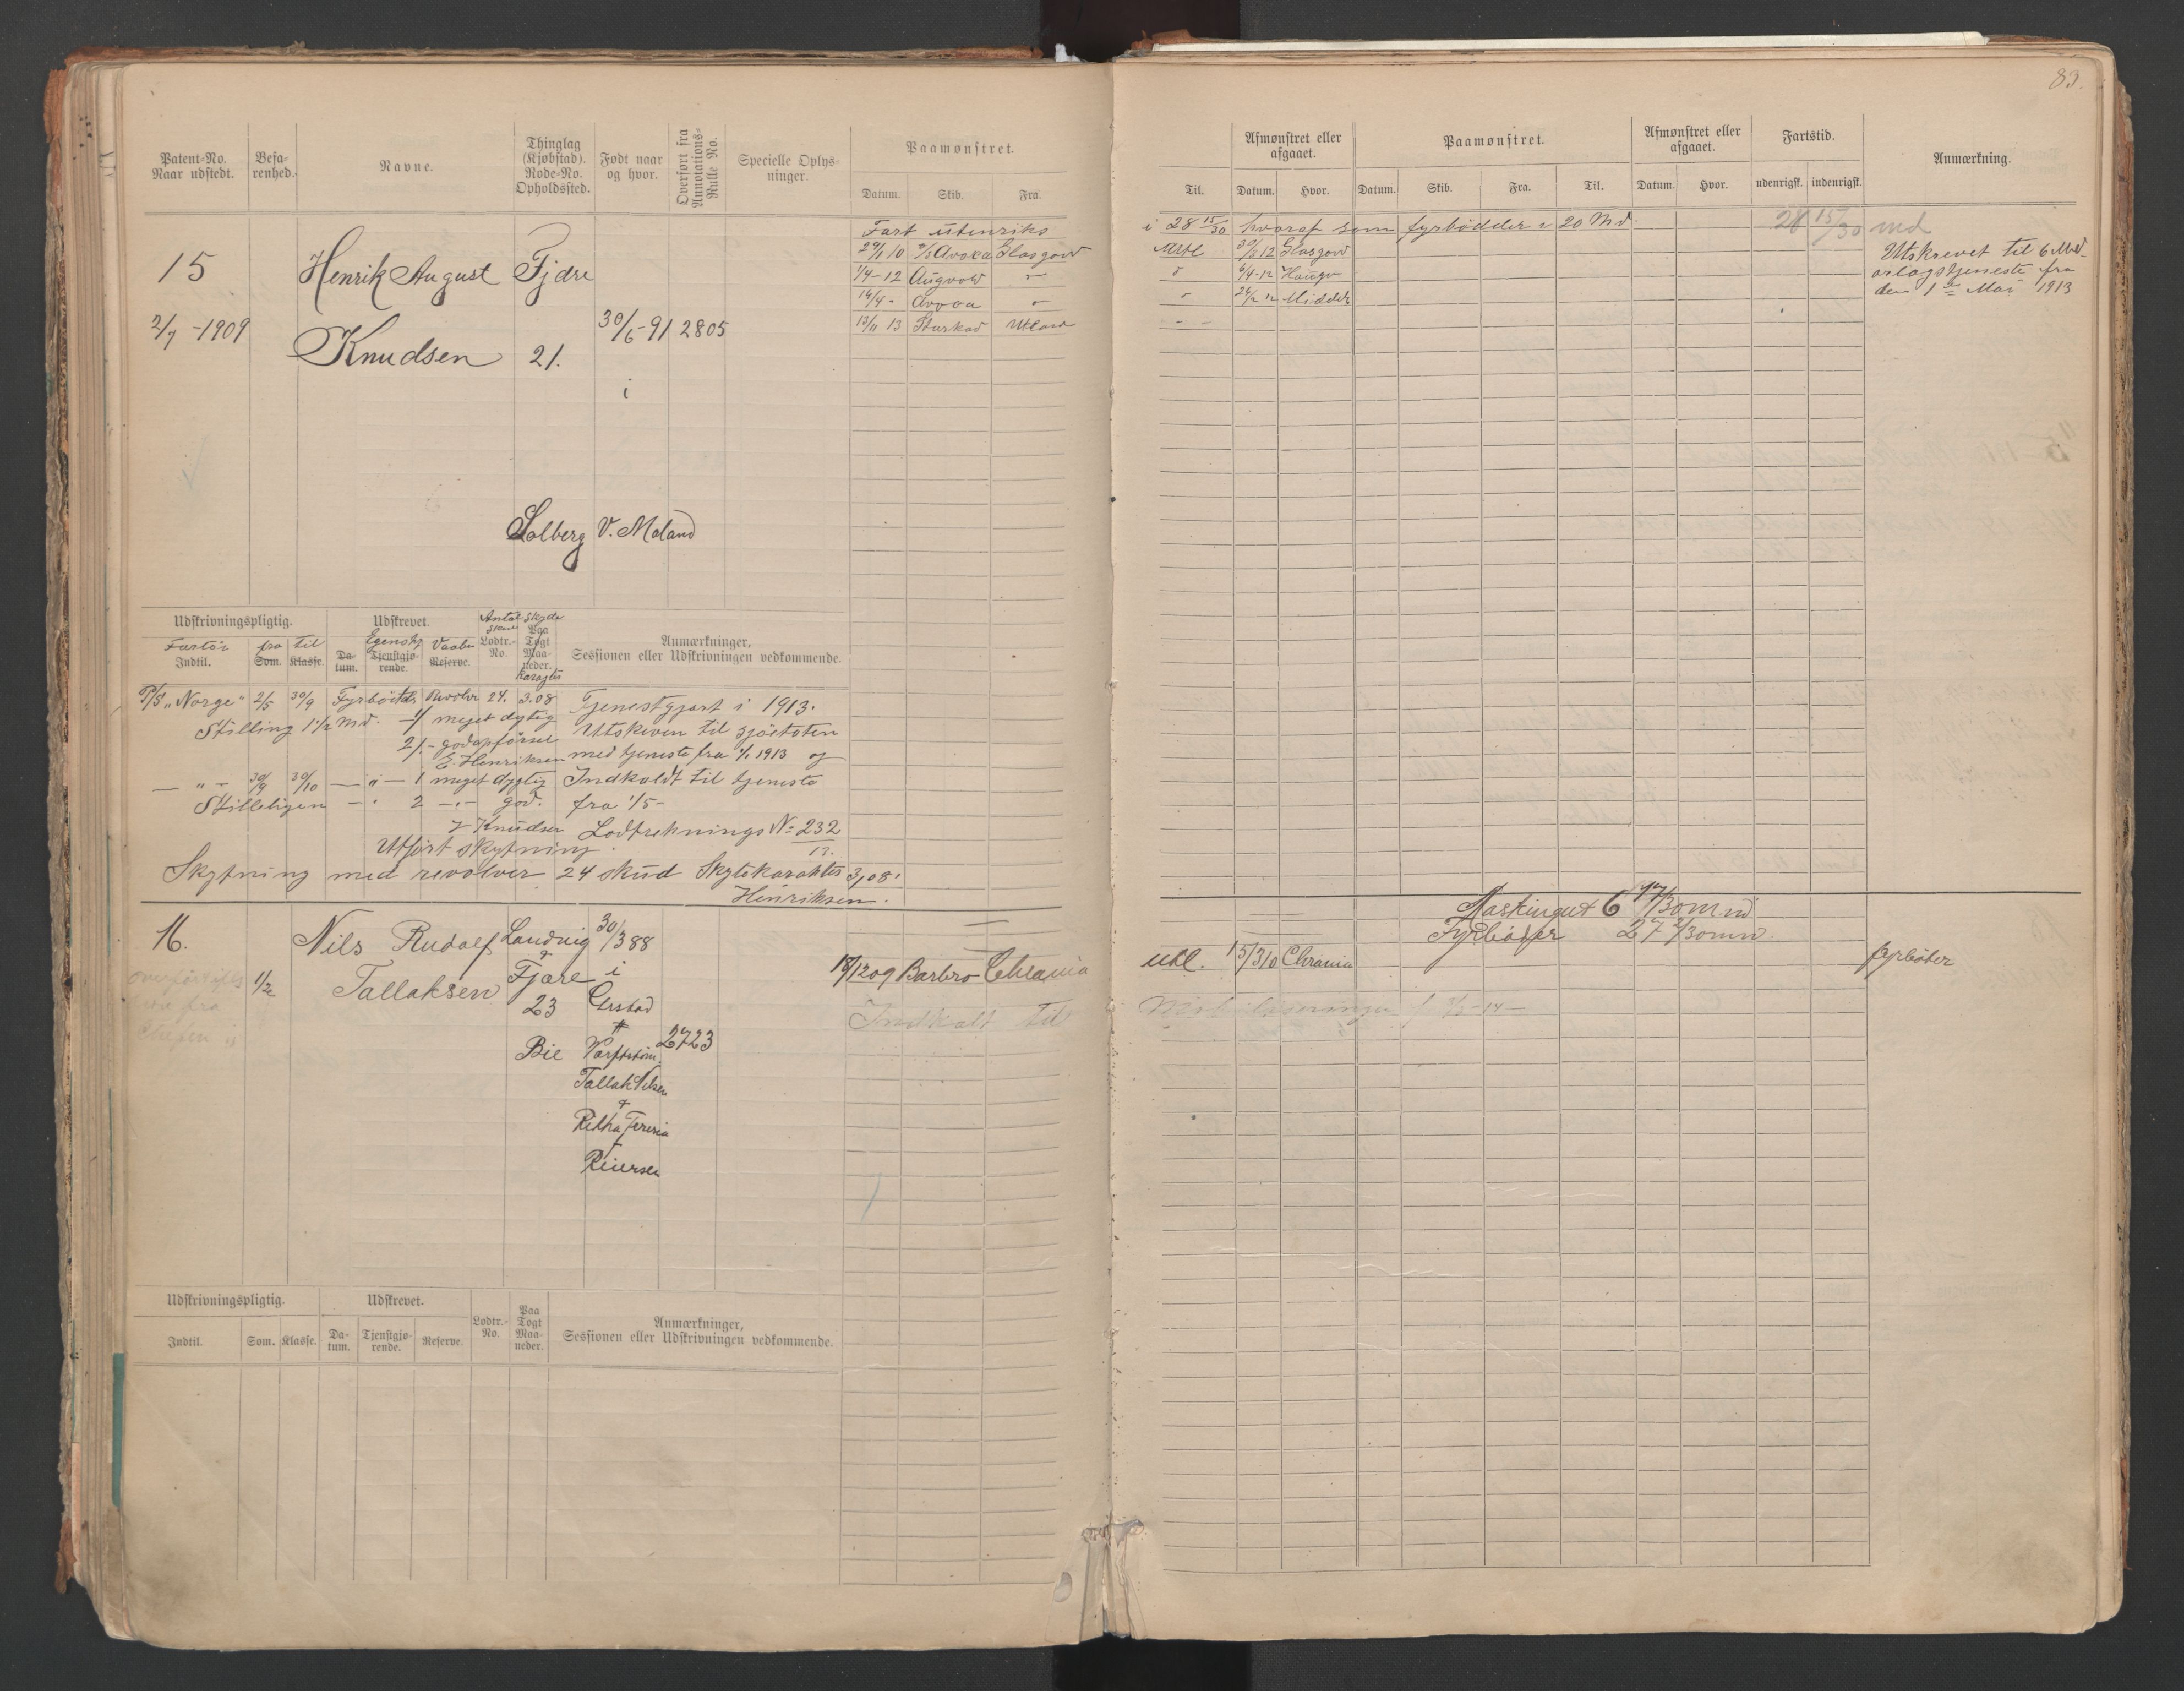 83.
Patent-No. Naar udstedt.
Besa-renhed.
Navne.
Thinglag (Kjøbstad). Rode-No. Opholdssted.
Født naar og hvor.
Overført fra Annotations-Rulle No.
Specielle Oplys-ninger.
Paamønstret.
Datum. Skib. Fra.
Til.
Afmønstret eller afgaaet.
Datum. Hvor.
Paamønstret.
Datum. Skib. Fra. Til.
Afmønstret eller afgaaet.
Datum. Hvor.
Fartstid.
udenrigsk. indenrigsk.
Anmærkning.
Fart utenriks i 28 15/30 hvoraf som fyrbödder i 20 Md. 28 15/30 md
15 Henrik August Fjære
29/1 10 S/S Avoca Glasgow Ostl 30/3 12 Glasgow
1/4-12 Augvald " " 6/4-12 Haugv
14/4 - Avoca " " 24/2 12 Middlr
2/7-1909 Knudsen 21. 30/6-91 2805
13/11 13 Sturkad Utland " -
i
Utskrevet til 6 Md.
orlogstjeneste fra
den 1ste Mai 1913
Solberg V. Moland
Udskrivningspligtig. Udskrevet. Antal Skud Skyde
Fartöi fra til Egensk. Vaaben Lodtr.-No. Paa Togt Maa-neder. Karakter
Indtil. Som. Klasse. Da-tum. Tjenstgjø-rende. Reserve.
Anmærkninger,
Sessionen eller Udskrivningen vedkommende.
P/S "Norge" 2/5 30/9 Fyrböter Revolver 24. 3.08 Tjenestgjort i 1913.
Stilling 1 1/2 Md. 1/ meget dygtig Utskreven til sjöetaten
2/- god opförsel med tjeneste fra 1/1 1913 og
E. Henriksen
— " — 30/9 30/10 — " — 1 meget dygtig Indkaldt til tjeneste
Stilleligen — " 2 — " — god. fra 1/5-
J Knudsen Lodtreknings No 232
13.
Utfört skytning.
Skytning med revolver 24 skud Skytekarakter 3,08.
Henriksen.
Maskingut 6 17/30 mnd
Fyrböter 27 2/30 mn.
16. Nils Rudolf Landvig 30/3 88
1/2 Tallaksen Fjære i
23 Ørstad
18/12 09 Barbro Chrania utl. 15/3 10 Chrania fyrböter
Bie 2723
Tallak Nilsen
+
Reiersen
Indkalt til
Udskrivningspligtig. Udskrevet. Lodtr.-No. Paa Togt Maa-neder.
Indtil. Som. Klasse. Da-tum. Tjenstgjø-rende. Reserve.
Anmærkninger,
Sessionen eller Udskrivningen vedkommende.